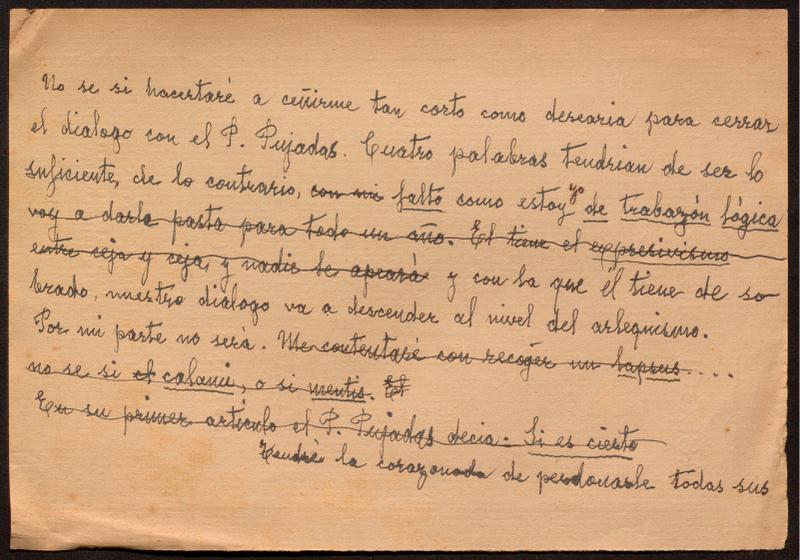 No se si hacertaré a ceñirme tan corto como desearia para cerrar
el dialogo con el P. Pujadas. Cuatro palabras tendrian de ser lo
suficiente, de lo contrario, con mi falto como estoy yo de trabazón lógica
voy a darle pasta para todo un año. El tiene el expresivismo
entre ceja y ceja, y nadie le apeará y con la que él tiene de so-
brado, nuestro dialogo va a descender al nivel del arlequismo.
Por mi parte no será. Me contentaré con recoger un lapsus....
no se si el calami, o si mentis. El
En su primer articulo el P. Pujadas decia. Si es cierto
Tendré la corazonada de perdonarle todas sus